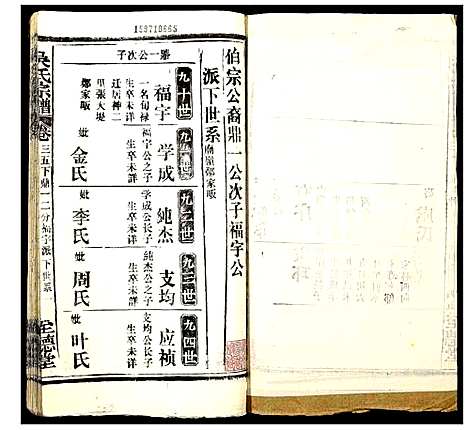 159710665
伯宗公裔鼎一公次子福宇公
派下世系
鼎一公次子
九十世
福宇
一名旬禄
生卒未详
迁居神二
里張大堤
鄒家畈
妣金氏
学成
福宇公之子
生卒未详
妣李氏
純杰
学成公長子
生卒未详
妣周氏
支均
純杰公之子
生卒未详
妣叶氏
九四世
应禎
支均公長子
生卒未详
吴氏宗譜
卷三五下鼎一二分福宇派下世系一
至德堂